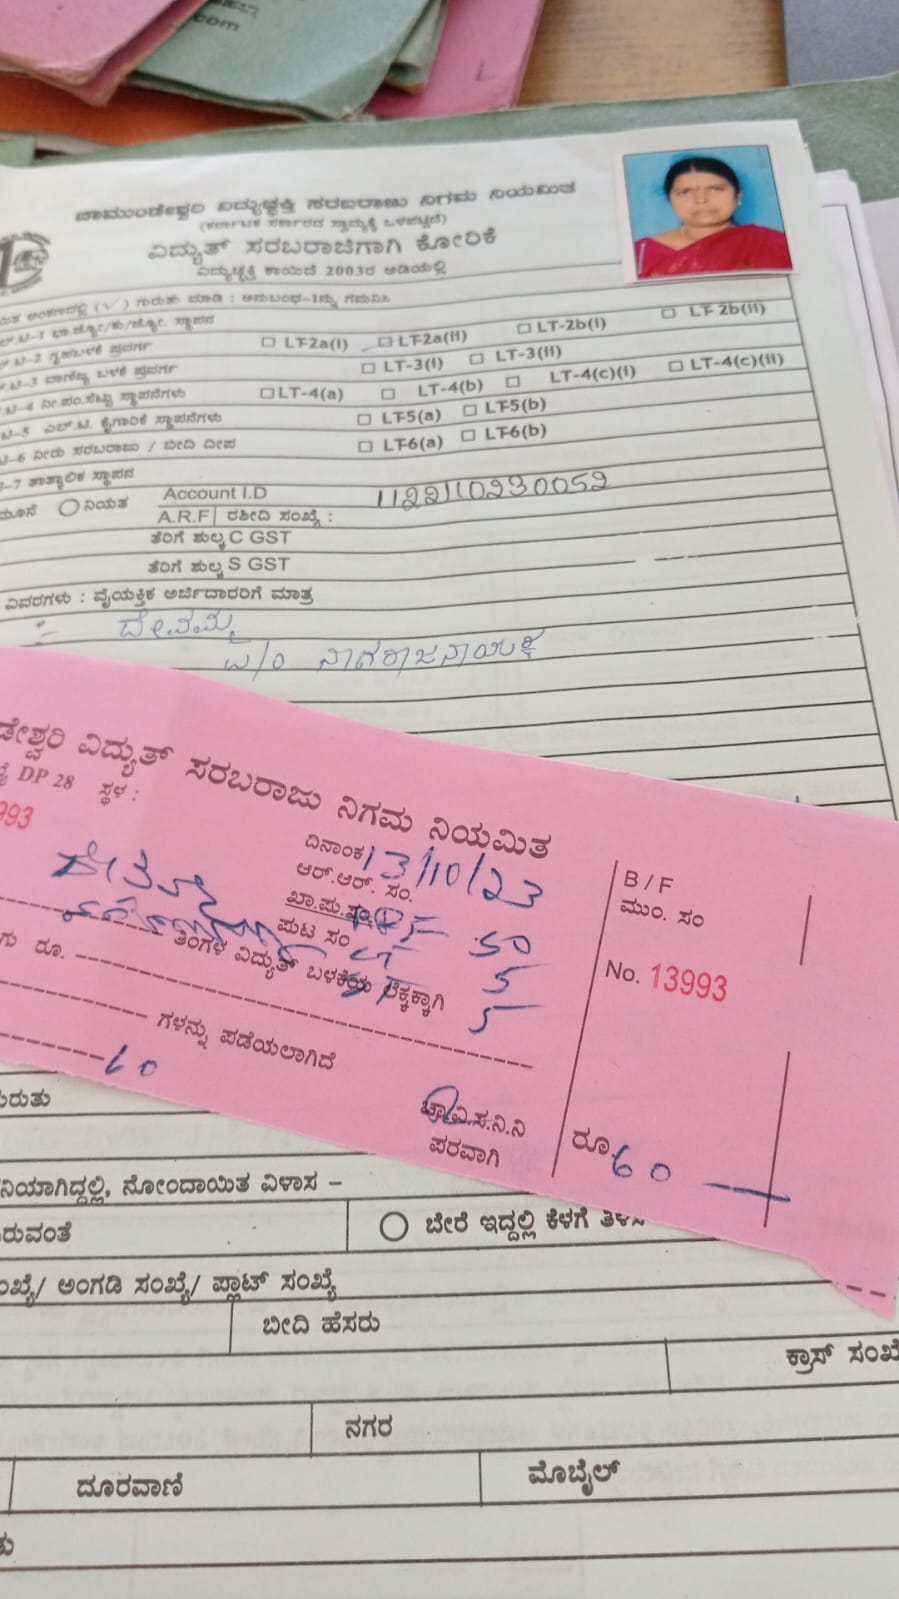 com
ಚಾಮುಂಡೇಶ್ವರಿ ವಿದ್ಯುಚ್ಛಕ್ತಿ ಸರಬರಾಜು ನಿಗಮ ನಿಯಮಿತ
(ಕರ್ನಾಟಕ ಸರ್ಕಾರದ ಸ್ವಾಮ್ಯಕ್ಕೆ ಒಳಪಟ್ಟಿದೆ)
ವಿದ್ಯುತ್ ಸರಬರಾಜಿಗಾಗಿ ಕೋರಿಕೆ
ವಿದ್ಯುಚ್ಛಕ್ತಿ ಕಾಯಿದೆ 2003ರ ಅಡಿಯಲ್ಲಿ
(√) ಗುರುತು ಮಾಡಿ : ಅನುಬಂಧ-1ನ್ನು ಗಮನಿಸಿ
ಸ್ಥಾಪನ
-2 ಗೃಹಬಳಕೆ ಪ್ರವರ್ಗ LT-2a(I) LT-2a(II) LT-2b(I) LT-2b(II)
-3 ವಾಣಿಜ್ಯ ಬಳಕೆ ಪ್ರವರ್ಗ LT-3(I) LT-3(II)
-4 ನೀ.ಪಂ.ಸೆಟ್ಟು ಸ್ಥಾಪನೆಗಳು LT-4(a) LT-4(b) LT-4(c)(I) LT-4(c)(II)
-5 ಎಲ್.ಟಿ. ಕೈಗಾರಿಕೆ ಸ್ಥಾಪನೆಗಳು LT-5(a) LT-5(b)
-6 ನೀರು ಸರಬರಾಜು / ಬೀದಿ ದೀಪ LT-6(a) LT-6(b)
-7 ತಾತ್ಕಾಲಿಕ ಸ್ಥಾಪನ
ನಿಯತ Account I.D 1122110230052
A.R.F ರಶೀದಿ ಸಂಖ್ಯೆ :
ತೆರಿಗೆ ಶುಲ್ಕ C GST
ತೆರಿಗೆ ಶುಲ್ಕ S GST
ವಿವರಗಳು : ವೈಯಕ್ತಿಕ ಅರ್ಜಿದಾರರಿಗೆ ಮಾತ್ರ
ದೇವಮ್ಮ
W/o ನಾಗರಾಜನಾಯಕ
ಡೇಶ್ವರಿ ವಿದ್ಯುತ್ ಸರಬರಾಜು ನಿಗಮ ನಿಯಮಿತ
DP 28 ಸ್ಥಳ :
993
ದಿನಾಂಕ 13/10/23
ಆರ್.ಆರ್. ಸಂ.
ಖಾ.ಪು.ಸಂ. 50
ಪುಟ ಸಂ 5
ತಿಂಗಳ ವಿದ್ಯುತ್ ಬಳಕೆಯ ಲೆಕ್ಕಕ್ಕಾಗಿ 5
ರೂ.
ಗಳನ್ನು ಪಡೆಯಲಾಗಿದೆ
60
ಚಾ.ವಿ.ಸ.ನಿ.ನಿ
ಪರವಾಗಿ
B / F
ಮುಂ. ಸಂ
No. 13993
ರೂ. 60
ಗುರುತು
ನಿಯಾಗಿದ್ದಲ್ಲಿ, ನೋಂದಾಯಿತ ವಿಳಾಸ –
ರುವಂತೆ ಬೇರೆ ಇದ್ದಲ್ಲಿ ಕೆಳಗೆ
ಅಂಗಡಿ ಸಂಖ್ಯೆ/ ಪ್ಲಾಟ್ ಸಂಖ್ಯೆ
ಬೀದಿ ಹೆಸರು
ಕ್ರಾಸ್ ಸಂಖ್ಯೆ
ನಗರ
ದೂರವಾಣಿ ಮೊಬೈಲ್